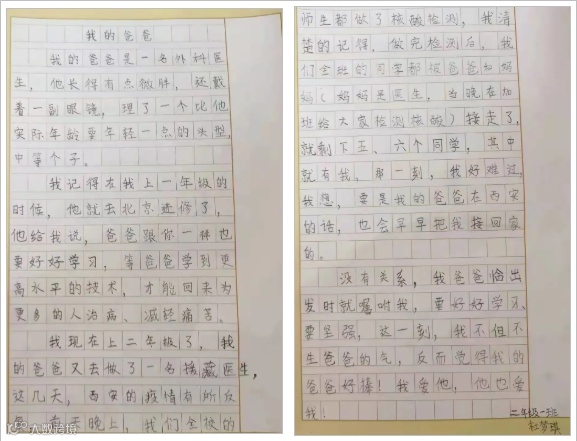 我的爸爸
我的爸爸是一名外科医
生，他长得有点微胖，还戴
着一副眼镜，理了一个比他
实际年龄要年轻一点的头型，
中等个子。
我记得在我上一年级的
时候，他就去北京进修了，
他给我说，爸爸跟你一样也
要好好学习，等爸爸学到更
高水平的技术，才能回来为
更多的人治病、减轻痛苦。
我现在上二年级了，我
的爸爸又去做了一名援藏医生，
这几天，西安的疫情有所反
天晚上，我们全校的
大数跨境
师生都做了核酸检测，我清
楚的记得，做完检测后，我
们全班的同学都被爸爸和妈
妈（妈妈是医生，当晚在加
班给大家检测核酸）接走了，
就剩下五、六个同学，其中
就有我，那一刻，我好难过，
我想，要是我的爸爸在西安
的话，也会早早把我接回家
的。
没有关系，我爸爸临出
发时就嘱咐我，要好好学习、
要坚强，这一刻，我不但不
生爸爸的气，反而觉得我的
爸爸好棒！我爱他，他也爱
我！
二年级一班
杜梦琪